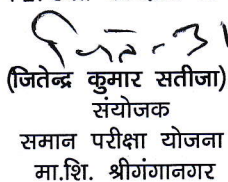 (जितेन्द्र कुमार सतीजा)
संयोजक
समान परीक्षा योजना
मा.शि. श्रीगंगानगर